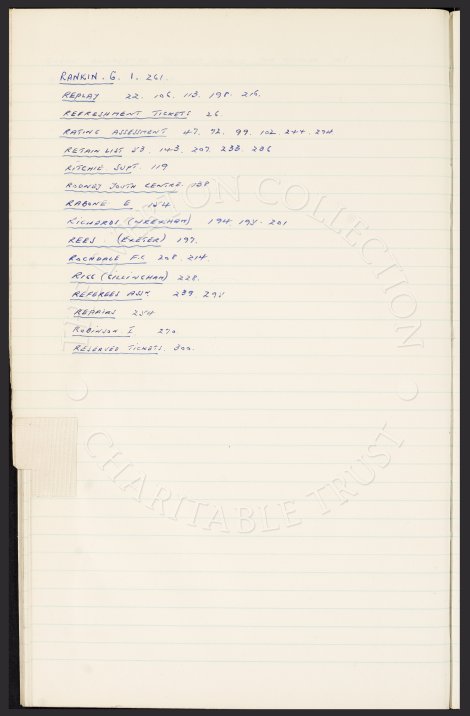 RANKIN. G. 1, 261.
REPLAY 22. 106. 113. 198. 216.
REFRESHMENT TICKETS 26
RATING ASSESSMENT 47. 72. 99. 102. 244. 274
RETAIN LIST 53. 143. 207. 233. 286
RITCHIE SUPT. 119
RODNEY YOUTH CENTRE. 138
RABONE E 154
RICHARDS (WREXHAM) 194. 195. 201
REES (EXETER) 197.
ROCHDALE F.C 208. 214.
RIGG (GILLINGHAM) 228.
REFEREES ASSN. 239. 295
REPAIRS 254
ROBINSON. I 270.
RESERVED TICKETS. 300.
COLLECTION
CHARITABLE TRUST